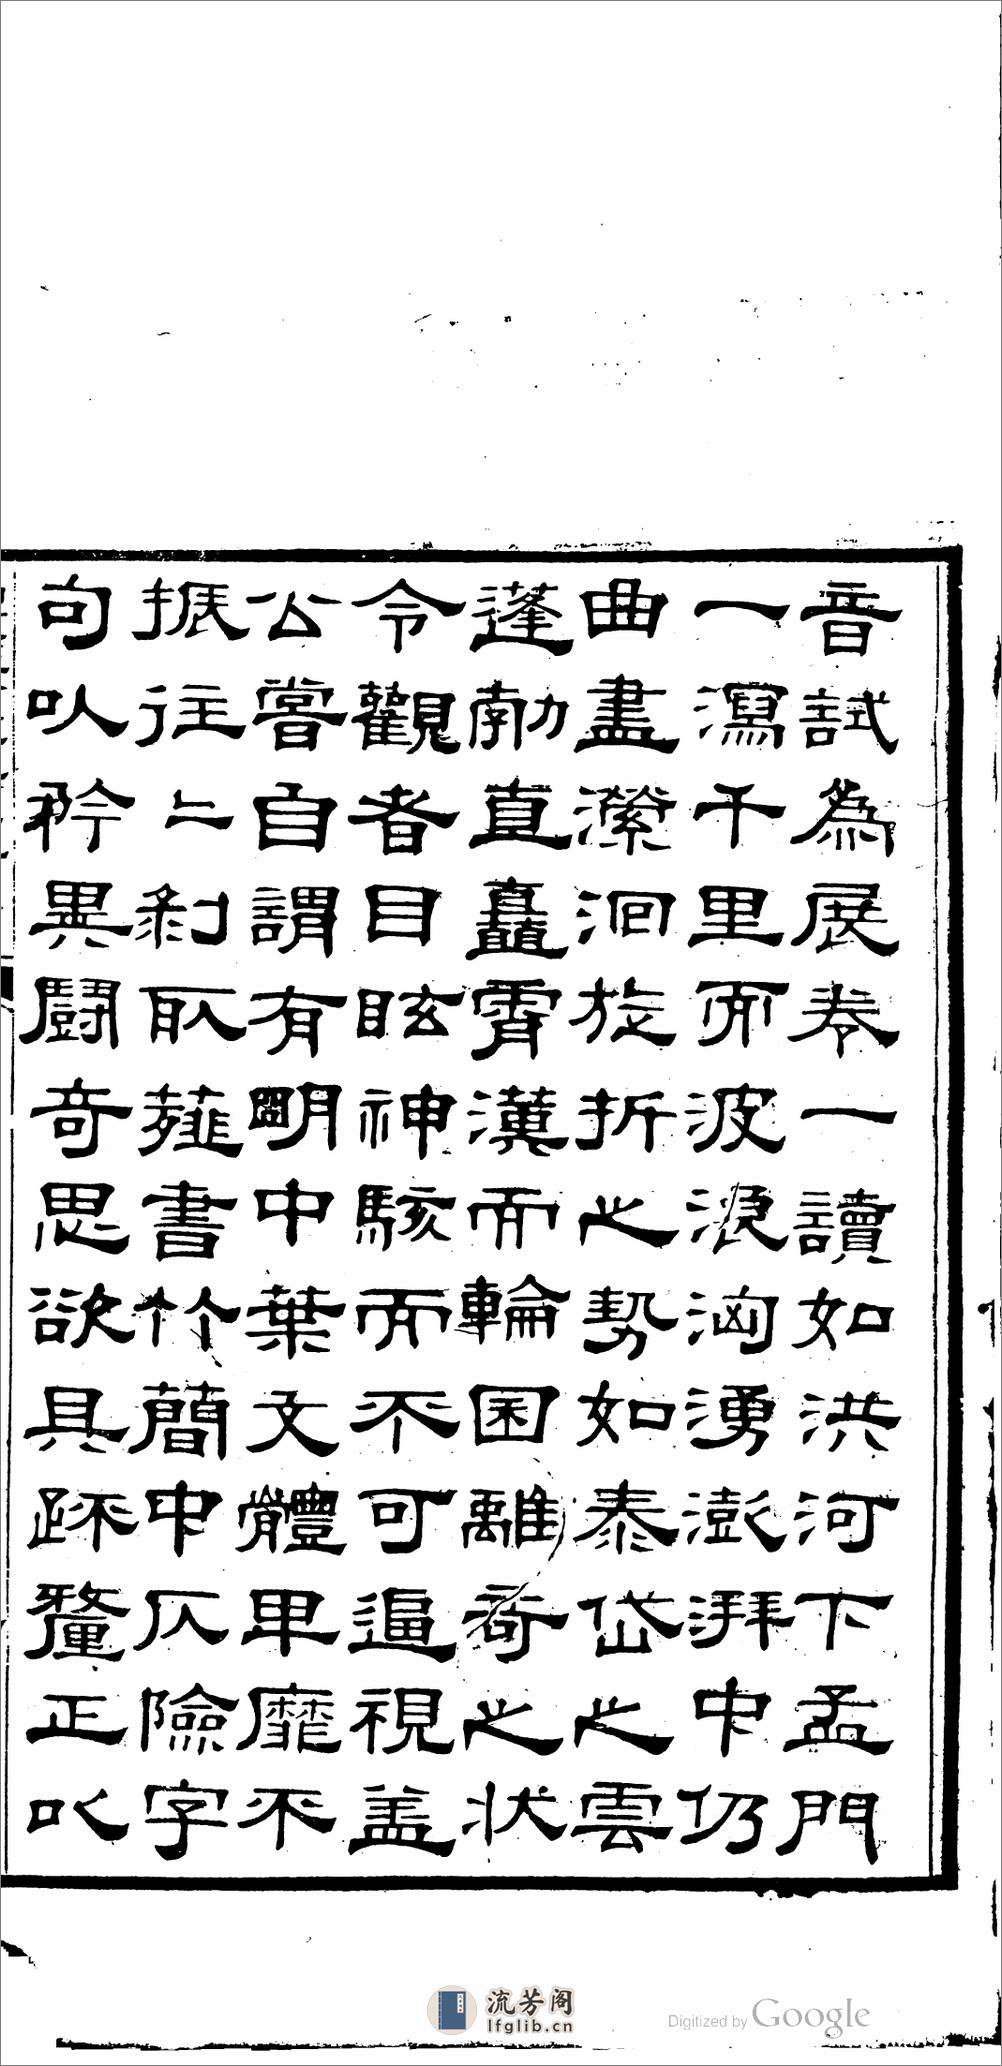 音試為展卷一讀如洪河下孟門
一瀉千里而波浪洶湧澎湃中仍
曲盡瀠洄旋折之勢如泰岱之雲
蓬勃直矗霄漢而輪囷離奇之狀
令觀者目眩神駭而不可逼視蓋
公嘗自謂有明中葉文體卑靡不
振往〻剽取薤書竹簡中仄險字
句以矜異鬭奇思欲具疏釐正以
流芳阁
lfglib.cn
Digitized by Google